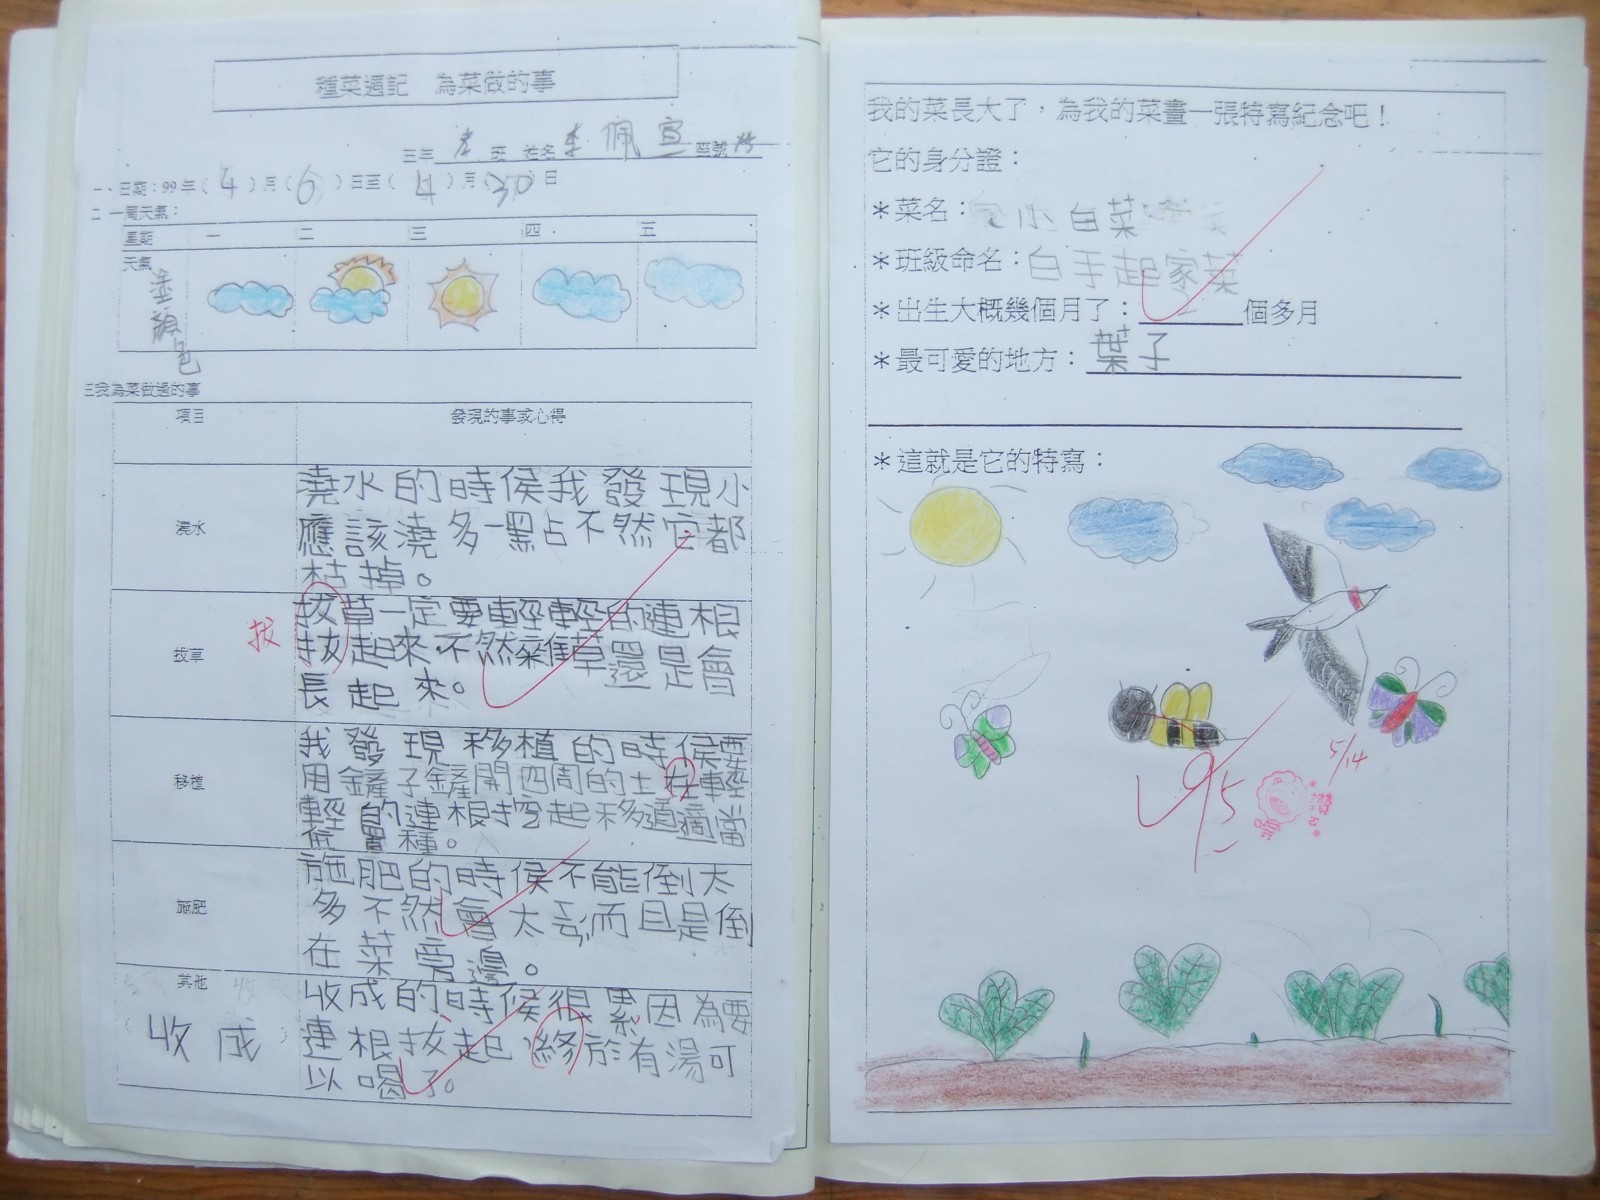 種菜週記 為菜做的事
三年 孝 班 姓名 李佩宣 座號
一、日期：99年(4)月(6)日至(4)月(30)日
二 一周天氣：
星期 一 二 三 四 五
天氣
塗顏色
三我為菜做過的事
項目 發現的事或心得
澆水
澆水的時侯我發現小
應該澆多一點占不然它都
枯掉。
拔
拔草
拔草一定要輕輕的連根
拔起來，不然雜草還是會
長起來。
移植
我發現移植的時侯要
用鏟子鏟開四周的土在輕
輕的連根挖起移道適當
位置種。
施肥
施肥的時侯不能倒太
多不然會太多，而且是倒
在菜旁邊。
其他
收成
收成的時候很累因為要
連根拔起，終於有湯可
以喝了。
我的菜長大了，為我的菜畫一張特寫紀念吧！
它的身分證：
＊菜名：小白菜
＊班級命名：白手起家菜
＊出生大概幾個月了：個多月
＊最可愛的地方：葉子
＊這就是它的特寫：
95
5/14